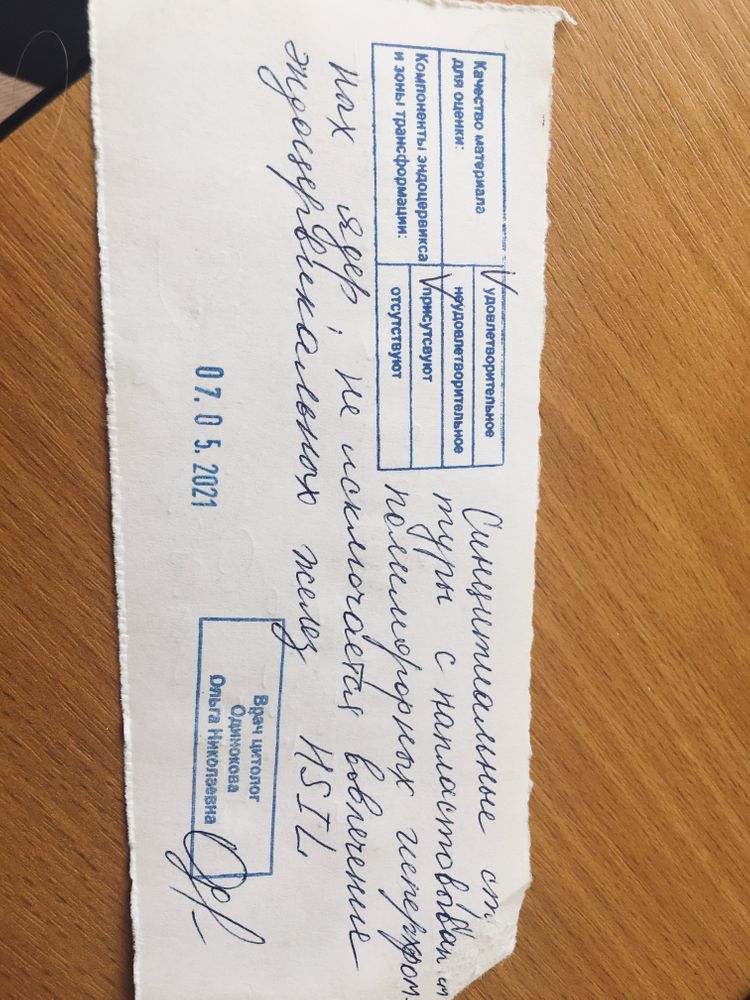 Качество материала
для оценки:
V удовлетворительное
неудовлетворительное
Компоненты эндоцервикса
и зоны трансформации:
V присутсвуют
отсутствуют
Синцитиальные ст
туры с напластовыван
полиморфных гиперхром-
ных ядер, не исключается вовлечение
эндоцервикальных желез HSIL
07.05.2021
Врач цитолог
Одинокова
Ольга Николаевна